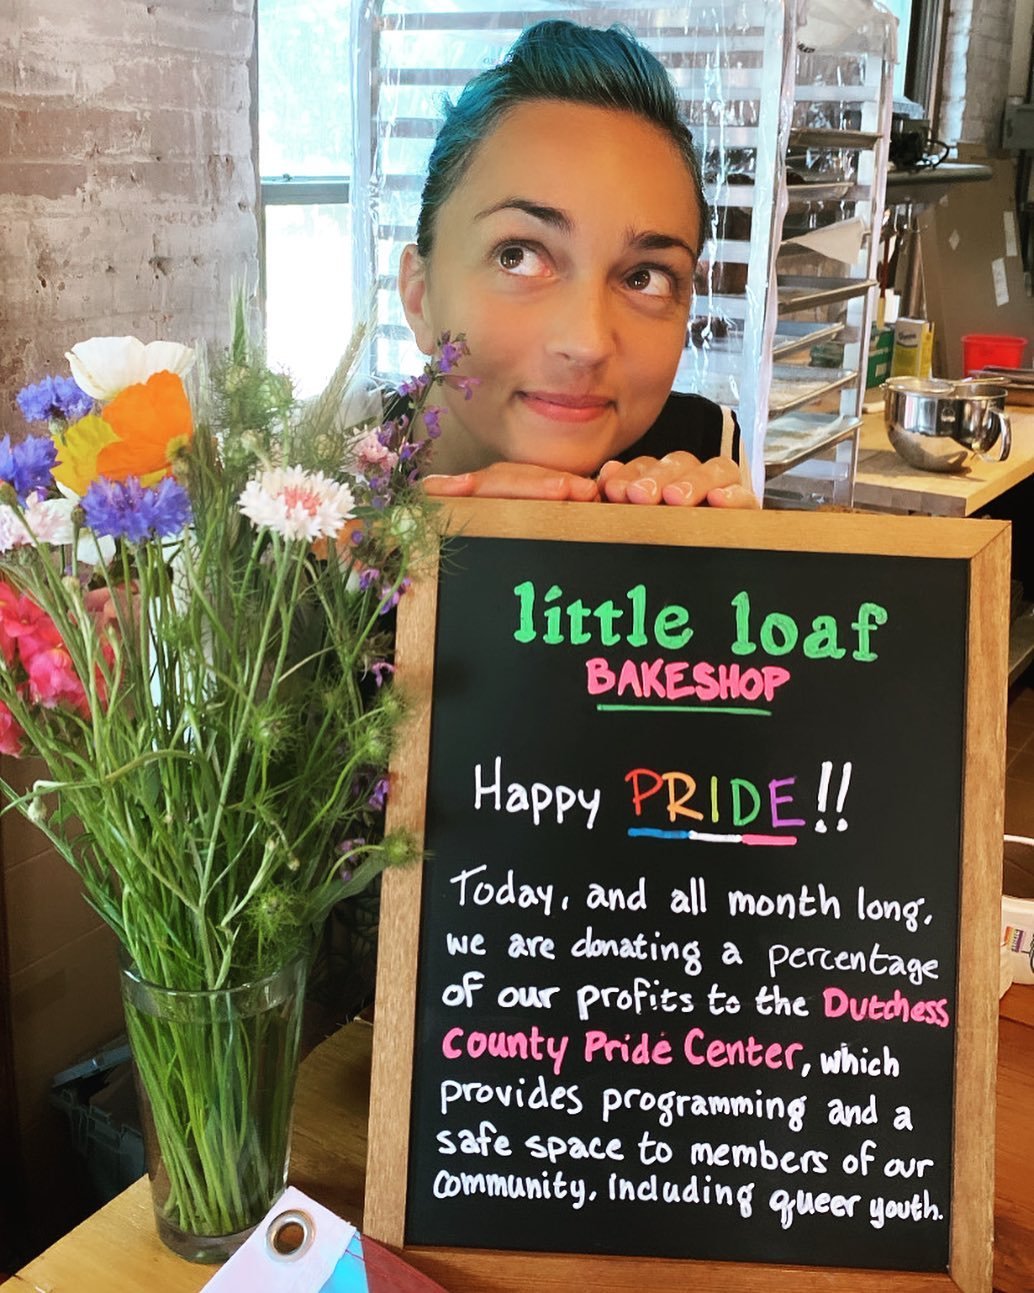 little loaf
BAKESHOP
Happy PRIDE!!
Today, and all month long,
we are donating a percentage
of our profits to the Dutchess
County Pride Center, which
provides programming and a
safe space to members of our
community, including queer youth.